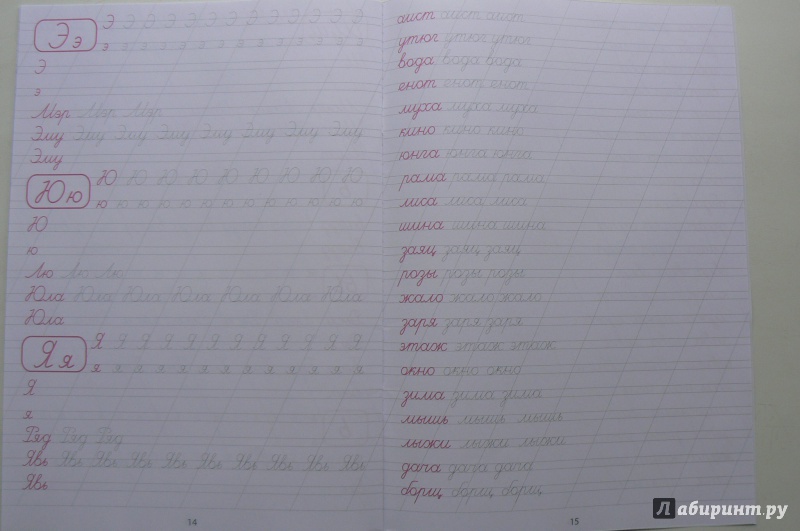 Ээ Э Э Э Э Э Э Э Э Э Э Э Э Э
э э э э э э э э э э э э э
Э
э
Мэр Мэр Мэр
Эму Эму Эму Эму Эму Эму Эму Эму
Эму
Юю Ю Ю Ю Ю Ю Ю Ю Ю Ю
ю ю ю ю ю ю ю ю ю ю ю ю ю
Ю
ю
Лю Лю Лю
Юла Юла Юла Юла Юла Юла Юла
Юла
Яя Я Я Я Я Я Я Я Я Я Я Я Я
я я я я я я я я я я я я
Я
я
Ряд Ряд Ряд
Явь Явь Явь Явь Явь Явь Явь Явь Явь Явь
Явь
14
аист аист аист
утюг утюг утюг
вода вода вода
енот енот енот
муха муха муха
кино кино кино
юнга юнга юнга
рама рама рама
лиса лиса лиса
шина шина шина
заяц заяц заяц
розы розы розы
жало жало жало
заря заря заря
этаж этаж этаж
окно окно окно
зима зима зима
мышь мышь мышь
лыжи лыжи лыжи
дача дача дача
борщ борщ борщ
15
Лабиринт.ру